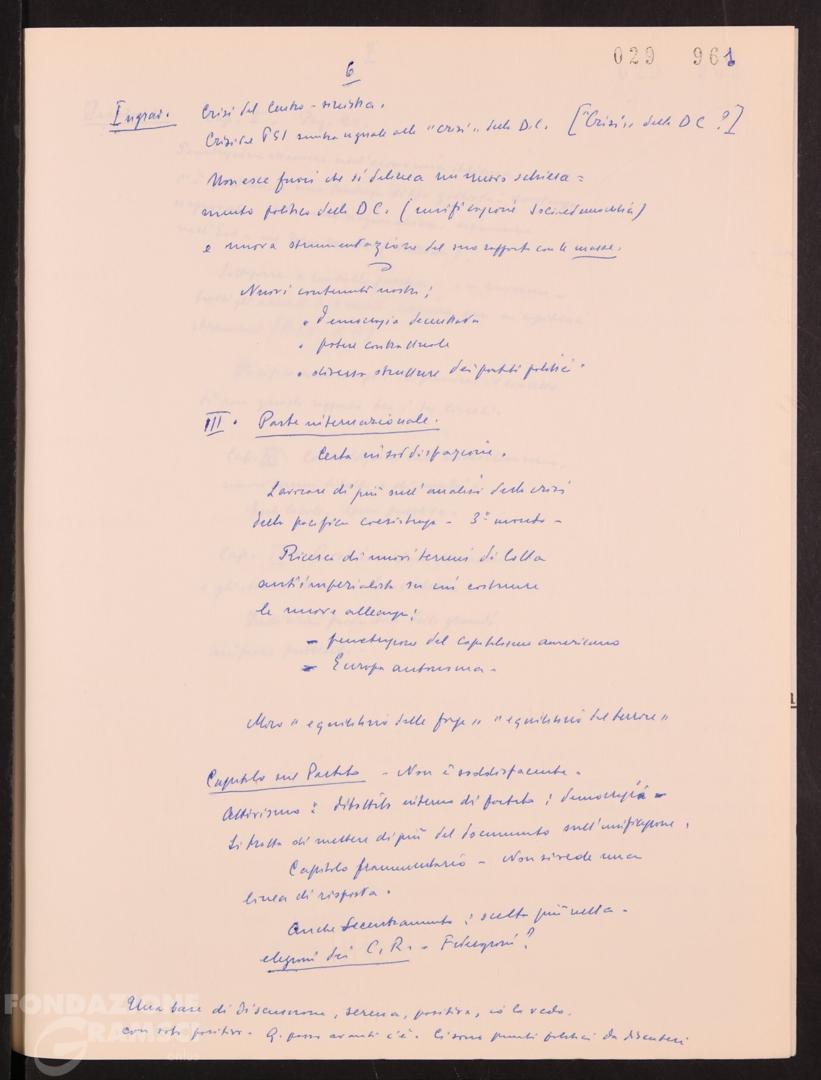 029 961
6
Ingrao. Crisi del Centro-sinistra.
Crisi del PSI sembra uguale alla "crisi" della D.C. ["Crisi" della DC?]
Non esce fuori che si delinea un nuovo schiera=
mento politico della DC. (unificazione socialdemocratica)
e nuova strumentazione del suo rapporto con le masse.
Nuovi contenuti nostri:
• democrazia decentrata
• potere contrattuale
• diversa struttura dei partiti politici.
III. Parte internazionale.
Certa insoddisfazione.
Lavorare di più sull'analisi della crisi
della pacifica coesistenza - 3° mondo -
Ricerca di nuovi terreni di lotta
antimperialista su cui costruire
le nuove alleanze:
- penetrazione del capitalismo americano
- Europa autonoma -
Moro "equilibrio delle forze" "equilibrio del terrore"
Capitolo sul Partito - Non è soddisfacente.
Attivismo: dibattito interno di partito; democrazia -
Si tratta di mettere di più del documento sull'unificazione.
Capitolo frammentario - Non si vede una
linea di risposta.
Anche decentramento: scelta più netta -
elezioni dei C.R. - Federazioni?
Una base di discussione, serena, positiva, io la vedo.
con voto positivo. passo avanti c'è. Ci sono punti politici da discutere
FONDAZIONE
GRAMSCI
onlus